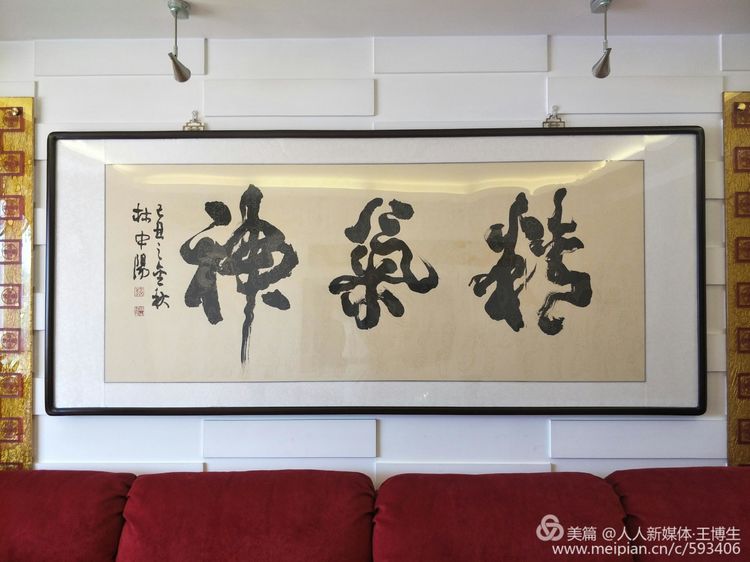 精氣神
己丑之金秋
林中陽
美篇 @人人新媒体·王博生
www.meipian.cn/c/593406